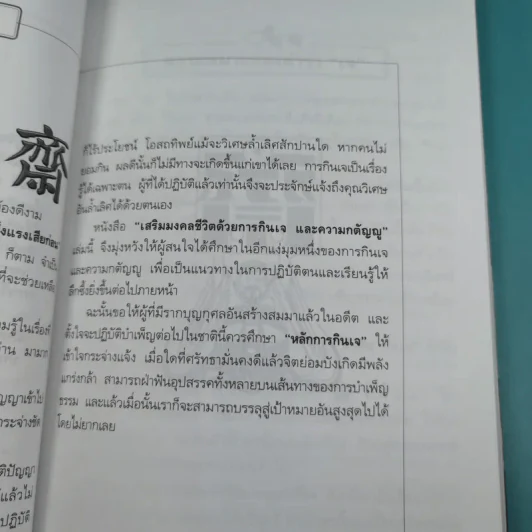 齋
้องดีงาม
ังแรงเสียก่อน"
ก็ตาม จำเป็
ที่จะช่วยเหลือ
ามรู้ในเรื่องทำ
้าน มามาก
ญญาเข้าไป
กระจ่างชัด
ติปัญญา
์แล้วไม่
ปฏิบัติ
ที่ไร้ประโยชน์ โอสถทิพย์แม้จะวิเศษล้ำเลิศสักปานใด หากคนไม่
ยอมกิน ผลดีนั้นก็ไม่มีทางจะเกิดขึ้นแก่เขาได้เลย การกินเจเป็นเรื่อง
รู้ได้เฉพาะตน ผู้ที่ได้ปฏิบัติแล้วเท่านั้นจึงจะประจักษ์แจ้งถึงคุณวิเศษ
อันล้ำเลิศได้ด้วยตนเอง
หนังสือ "เสริมมงคลชีวิตด้วยการกินเจ และความกตัญญู"
เล่มนี้ จึงมุ่งหวังให้ผู้สนใจได้ศึกษาในอีกแง่มุมหนึ่งของการกินเจ
และความกตัญญู เพื่อเป็นแนวทางในการปฏิบัติตนและเรียนรู้ให้
ลึกซึ้งยิ่งขึ้นต่อไปภายหน้า
ฉะนั้นขอให้ผู้ที่มีรากบุญกุศลอันสร้างสมมาแล้วในอดีต และ
ตั้งใจจะปฏิบัติบำเพ็ญต่อไปในชาตินี้ควรศึกษา "หลักการกินเจ" ให้
เข้าใจกระจ่างแจ้ง เมื่อใดที่ศรัทธามั่นคงดีแล้วจิตย่อมบังเกิดมีพลัง
แกร่งกล้า สามารถฝ่าฟันอุปสรรคทั้งหลายบนเส้นทางของการบำเพ็ญ
ธรรม และแล้วเมื่อนั้นเราก็จะสามารถบรรลุสู่เป้าหมายอันสูงสุดไปได้
โดยไม่ยากเลย